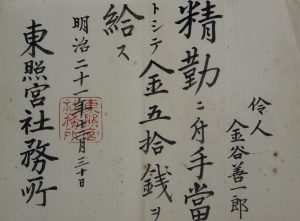 伶人
金谷善一郎
精勤ニ付手當
トシテ金五拾銭ヲ
給ス
明治二十一年十二月三十日
東照宮社務所
東照宮
社務所